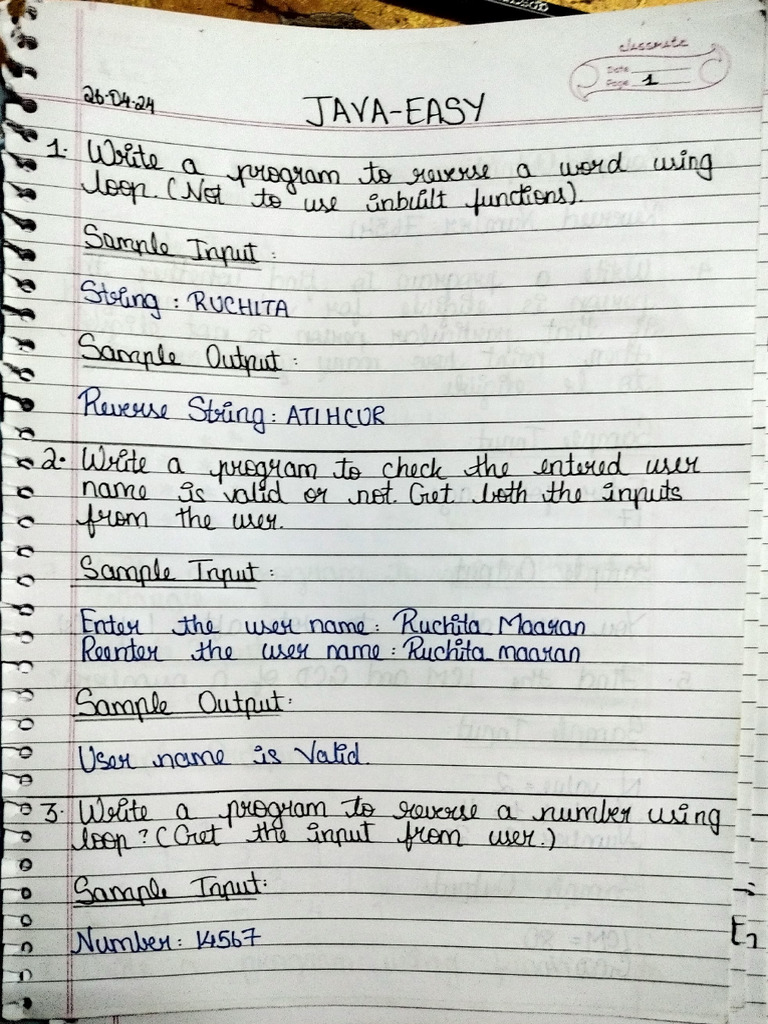 classmate
Date
Page 1
26-04-24
JAVA-EASY
1. Write a program to reverse a word using
loop. (Not to use inbuilt functions).
Sample Input :
String : RUCHITA
Sample Output :
Reverse String : ATIHCUR
2. Write a program to check the entered user
name is valid or not. Get both the inputs
from the user.
Sample Input :
Enter the user name : Ruchita Maaran
Reenter the user name : Ruchita maaran
Sample Output :
User name is Valid.
3. Write a program to reverse a number using
loop? (Get the input from user.)
Sample Input :
Number : 14567